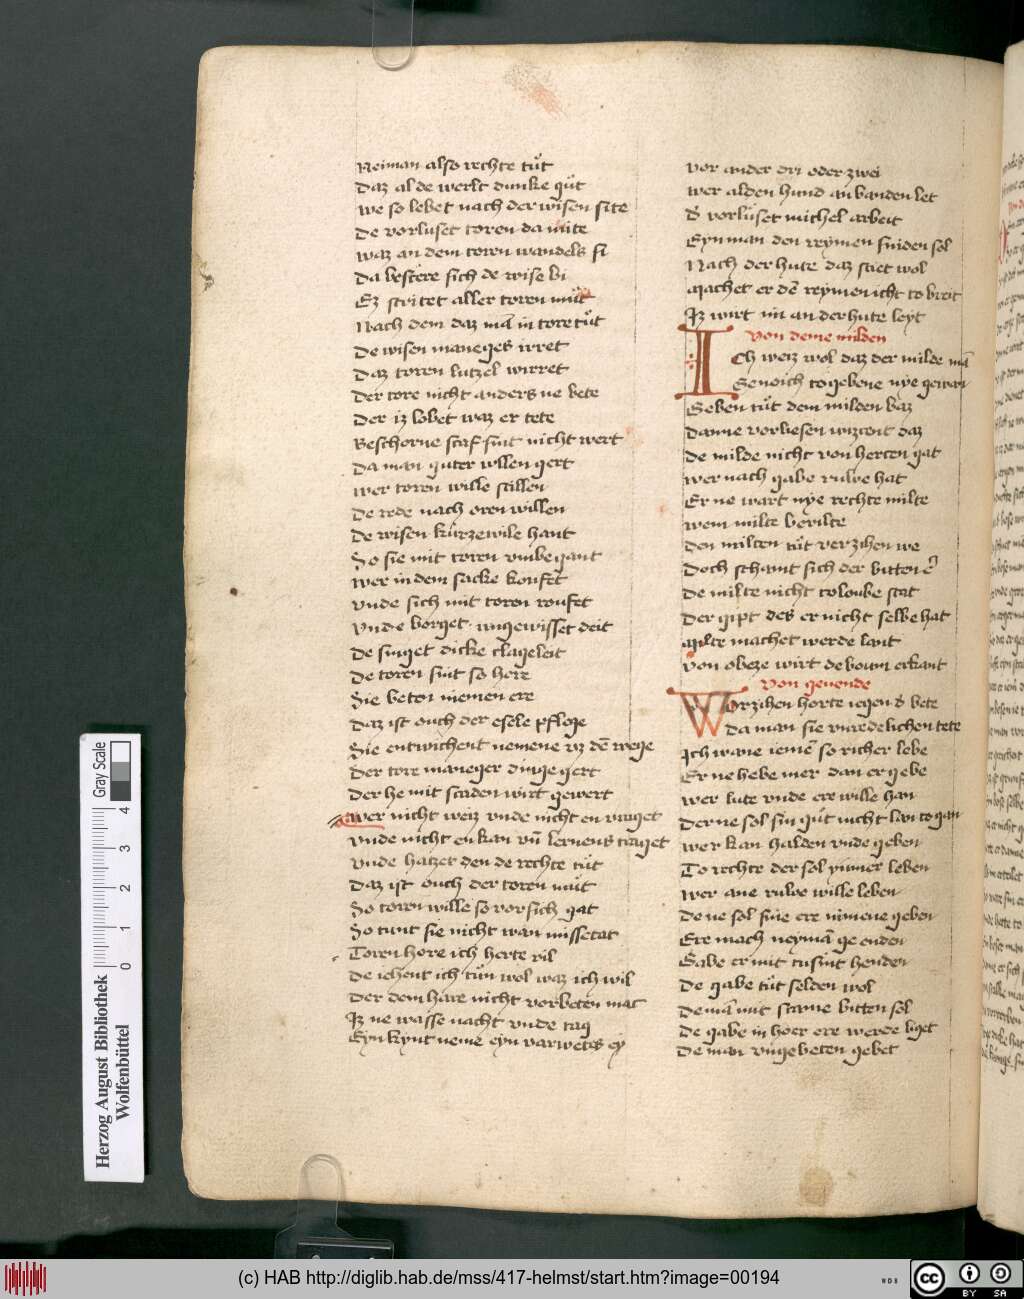 Neiman also rechte tůt
Daz al de werlt dunke gůt
We so lebet nach der wisen site
De vorluset toren da mite
Waz an dem toren wandels si
Da bestere sich de wise bi
Ez stritet aller toren můt
Nach dem daz mā in tore tůt
De wisen maneges irret
Daz toren lutzel wirret
Der tore nicht anders ne bete
Der iz lobet waz er tete
Beschorne scaf sint nicht wert
Da man guter wllen gert
Wer toren wille stillen
De rede nach oren willen
De wisen kůrzewile hant
So sie mit toren umbe gant
Wer in dem sacke koufet
Unde sich mit toren roufet
Unde borget ungewisset deit
De singet dicke clageleit
De toren sint so here
Sie beten niemen ere
Daz ist ouch der esele pflege
Sie entwichent nemene uz dē wege
Der tore maneger dinge gert
Der he mit scaden wirt gewert
Wer nicht weiz unde nicht en vraget
Unde nicht enkan uñ lernens traget
Unde hatzet den de rechte tůt
Daz ist ouch der toren můt
So toren wille so vor sich gat
So tunt sie nicht wan missetat
Toren hore ich herte vil
De iehent ich tůn wol waz ich wil
Der dem hare nicht vorbeten mac
Iz ne wasse nacht unde tag
Eyn kynt neme eyn varwets ey
Vor ander dri oder zwei
Wer alden hund an banden let
d' vorluset michel arbeit
Eyn man den reymen sniden sol
Nach der hute daz stet wol
Machet er dē reymen icht to breit
Iz wirt im an der hute leyt
Von deme milden
Ich weiz wol daz der milde mā
Genoich to gebene nye gewan
Geben tůt dem milden baz
Danne vorliesen wizcent daz
De milde nicht von herten gat
Wer nach gabe rulve hat
Er ne wart nye rechte milte
Wem milte bevilte
Den milten tůt verzihen we
Doch schamt sich der bitten e'
De milte nicht to loube stat
Der gipt des er nicht selbe hat
Milte machet werde lant
Von obeze wirt de boum erkant
Von gevende
Vorzihen horte iegen d' bete
Da man sie unredelichen tete
Ich wane iemē so richer lebe
Er ne hebe mer dan er gebe
Wer lute unde ere wille han
Der ne sol sin gůt nicht lan to gan
Wer kan halden unde geben
To rechte der sol ymmer leben
Wer ane rulve wille leben
De ne sol sine ere nimene geben
Ere mach neymā ge enden
Gabe er mit tusint henden
De gabe tůt selden wol
De mā mit scame bitten sol
De gabe in hoer ere werde liget
De man ungebeten gebet
Herzog August Bibliothek
Wolfenbüttel
Gray Scale
0 1 2 3 4
(c) HAB http://diglib.hab.de/mss/417-helmst/start.htm?image=00194
WDB
cc BY SA